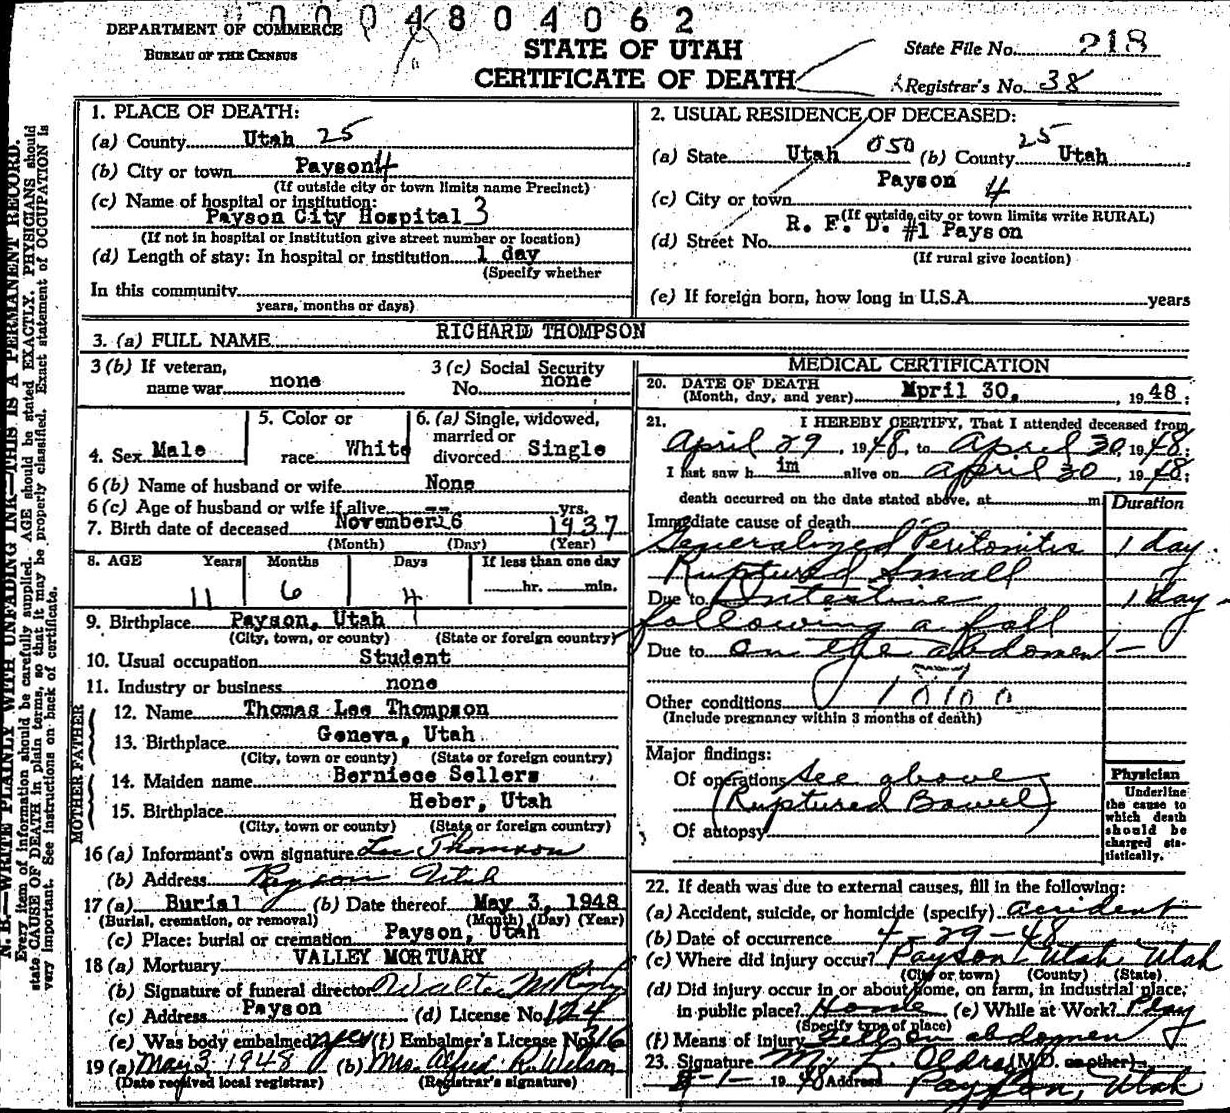 0004804062
DEPARTMENT OF COMMERCE
BUREAU OF THE CENSUS
STATE OF UTAH
CERTIFICATE OF DEATH
State File No. 218
Registrar's No. 38
N. B.—WRITE PLAINLY WITH UNFADING INK—THIS IS A PERMANENT RECORD.
Every item of information should be carefully supplied. AGE should be stated EXACTLY. PHYSICIANS should
state CAUSE OF DEATH in plain terms, so that it may be properly classified. Exact statement of OCCUPATION is
very important. See instructions on back of certificate.
1. PLACE OF DEATH:
(a) County Utah 25
(b) City or town Payson 4
(If outside city or town limits name Precinct)
(c) Name of hospital or institution:
Payson City Hospital 3
(If not in hospital or institution give street number or location)
(d) Length of stay: In hospital or institution 1 day
(Specify whether
In this community
years, months or days)
2. USUAL RESIDENCE OF DECEASED:
(a) State Utah 050 (b) County 25 Utah
Payson 4
(c) City or town
(If outside city or town limits write RURAL)
R. F. D. #1 Payson
(d) Street No.
(If rural give location)
(e) If foreign born, how long in U.S.A. years
3. (a) FULL NAME RICHARD THOMPSON
3 (b) If veteran,
name war none
3 (c) Social Security
No. none
4. Sex Male
5. Color or
race White
6. (a) Single, widowed,
married or
divorced Single
6 (b) Name of husband or wife None
6 (c) Age of husband or wife if alive -- yrs.
7. Birth date of deceased November 26 1937
(Month) (Day) (Year)
8. AGE Years Months Days If less than one day
11 6 4 hr. min.
9. Birthplace Payson, Utah
(City, town, or county) (State or foreign country)
10. Usual occupation Student
11. Industry or business none
FATHER
12. Name Thomas Lee Thompson
13. Birthplace Geneva, Utah
(City, town or county) (State or foreign country)
MOTHER
14. Maiden name Berniece Sellers
15. Birthplace Heber, Utah
(City, town or county) (State or foreign country)
16 (a) Informant's own signature Lee Thomson
(b) Address Payson Utah
17 (a) Burial (b) Date thereof May 3, 1948
(Burial, cremation, or removal) (Month) (Day) (Year)
(c) Place: burial or cremation Payson, Utah
18 (a) Mortuary VALLEY MORTUARY
(b) Signature of funeral director Walter
(c) Address Payson (d) License No. 124
(e) Was body embalmed yes (f) Embalmer's License No. 216
19 (a) May 3 1948 (b) Mrs. Alfred R. Wilson
(Date received local registrar) (Registrar's signature)
MEDICAL CERTIFICATION
20. DATE OF DEATH
(Month, day, and year) April 30, , 19 48 ;
21. I HEREBY CERTIFY, That I attended deceased from
April 29 , 1948, to April 30 1948;
I last saw h im alive on April 30 , 1948;
death occurred on the date stated above, at m
Duration
Immediate cause of death
Generalized Peritonitis 1 day.
Ruptured Small
Due to Intestine 1 day -
following a fall
Due to on the abdomen -
Other conditions
(Include pregnancy within 3 months of death)
Major findings:
Of operations See above
(Ruptured Bowel)
Of autopsy
Physician
Underline
the cause to
which death
should be
charged sta-
tistically.
22. If death was due to external causes, fill in the following:
(a) Accident, suicide, or homicide (specify) accident
(b) Date of occurrence 4-29-48
(c) Where did injury occur? Payson Utah Utah
(City or town) (County) (State)
(d) Did injury occur in or about home, on farm, in industrial place,
in public place? Home (e) While at Work? Play
(Specify type of place)
(f) Means of injury Fell on abdomen
23. Signature (M.D. or other)
5-1- 19 48 Address Payson, Utah